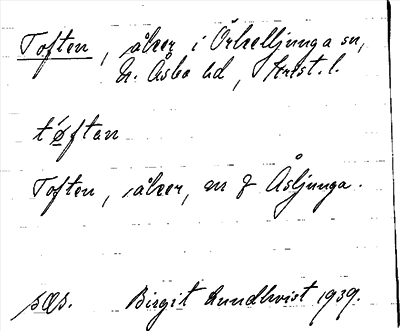 Toften, åker i Örkelljunga sn,
N. Åsbo hd, Krist. l.
tøftan
Toften, åker, en g Åsljunga.
sæs. Birgit Lundkvist 1939.